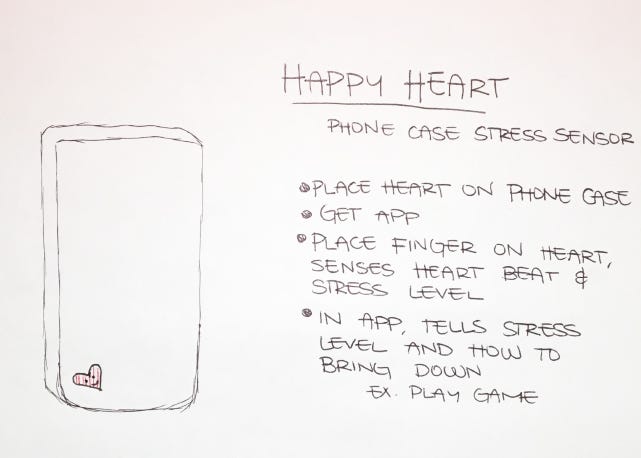 HAPPY HEART
PHONE CASE STRESS SENSOR
• PLACE HEART ON PHONE CASE
• GET APP
• PLACE FINGER ON HEART,
SENSES HEART BEAT &
STRESS LEVEL
• IN APP, TELLS STRESS
LEVEL AND HOW TO
BRING DOWN
EX. PLAY GAME